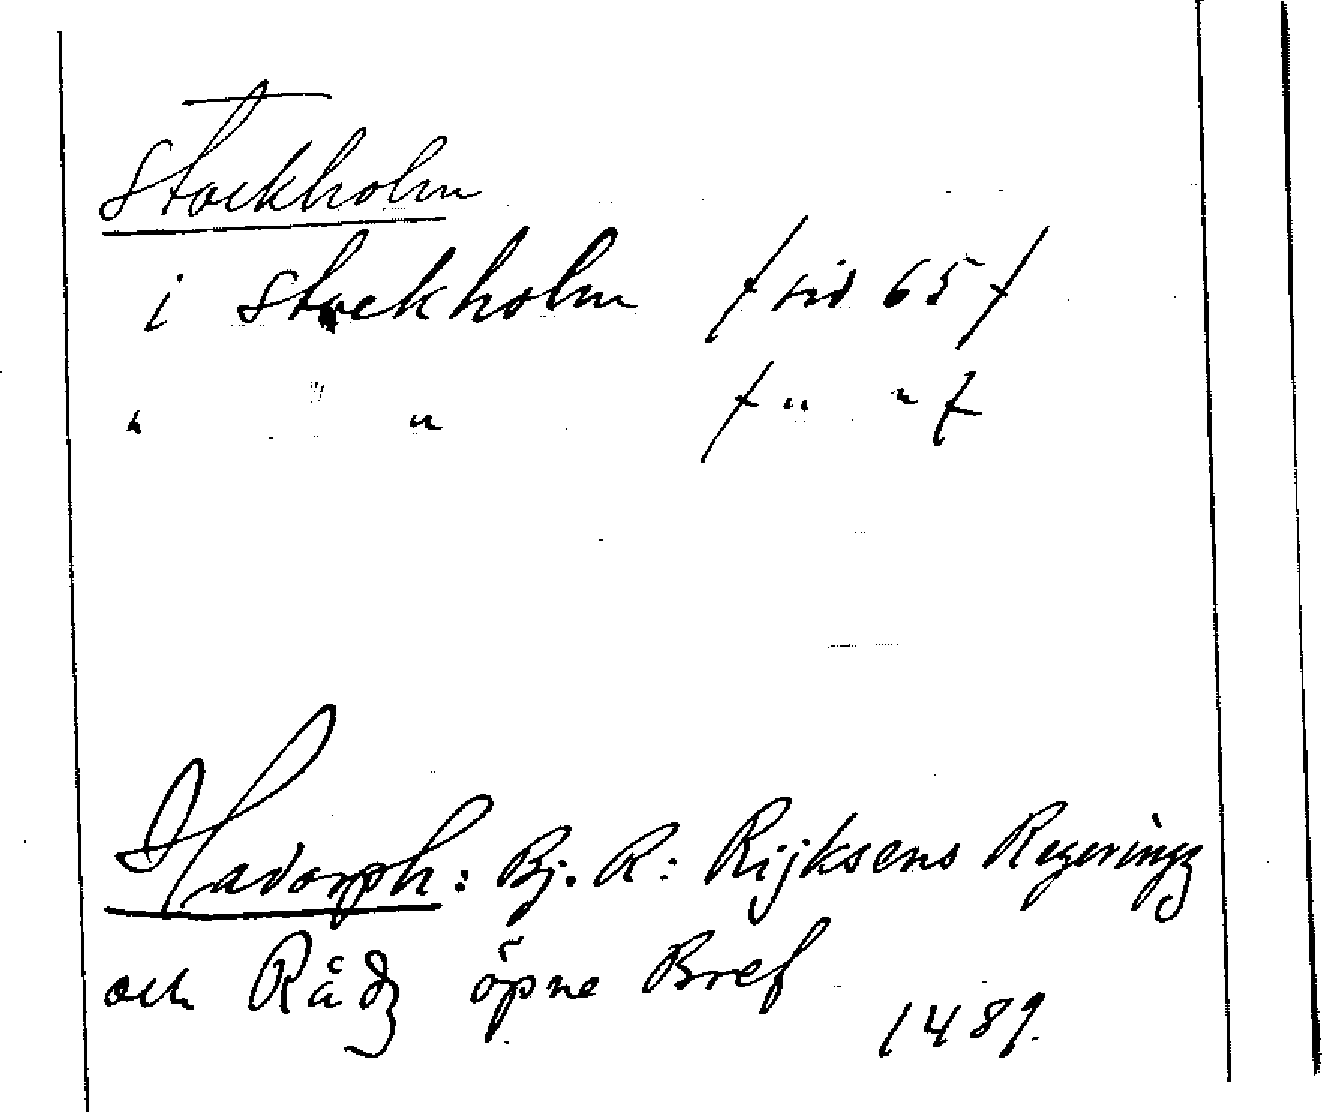 Stockholm
i Stockholm / sid 65 /
" " " / " " /
Hadorph: Bj. R: Rijksens Regeringz
och Rådz öpne Bref
1489.